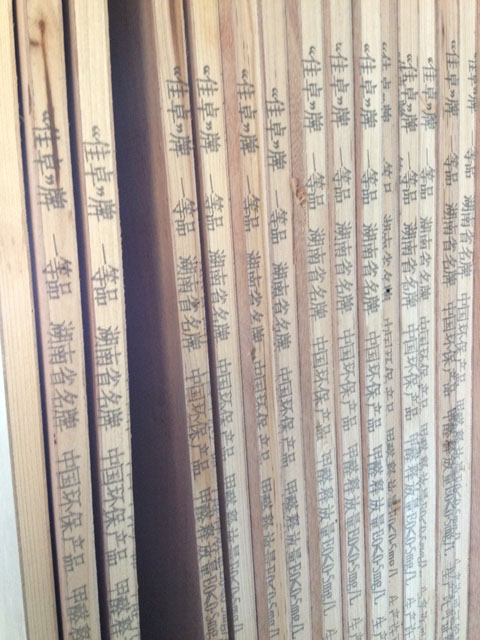 “佳卓”牌 一等品 湖南省名牌 中国环保产品 甲醛释
“佳卓”牌 一等品 湖南省名牌 中国环保产品 甲醛
“佳卓”牌 一等品 湖南省名牌 中国环保产品 甲醛释放量E0≤0.5m
“佳卓”牌 一等品 湖南省名牌 中国环保产品 甲醛释放量E0≤0.5m
“佳卓”牌 一等品 湖南省名牌 中国环保产品 甲醛释放量E0≤0.5mg/L
“佳卓”牌 一等品 湖南省名牌 中国环保产品 甲醛释放量E0≤0.5mg/L
“佳卓”牌 一等品 湖南省名牌 中国环保产品 甲醛释放量E0≤0.5mg/L
“佳卓”牌 一等品 湖南省名牌 中国环保产品 甲醛释放量E0≤0.5mg/L
“佳卓”牌 一等品 湖南省名牌 中国环保产品 甲醛释放量E0≤0.5mg/L
佳卓 牌 等品 湖南省名牌 中国环保产品
“佳卓”牌 一等品 湖南省名牌 中国环保产品
“佳卓”牌 一等品 湖南省名牌 中国环保产品
“佳卓”牌 一等品 湖南省名牌 中国环保产品
佳卓 牌 一等品 湖南省名牌 中国环保产品